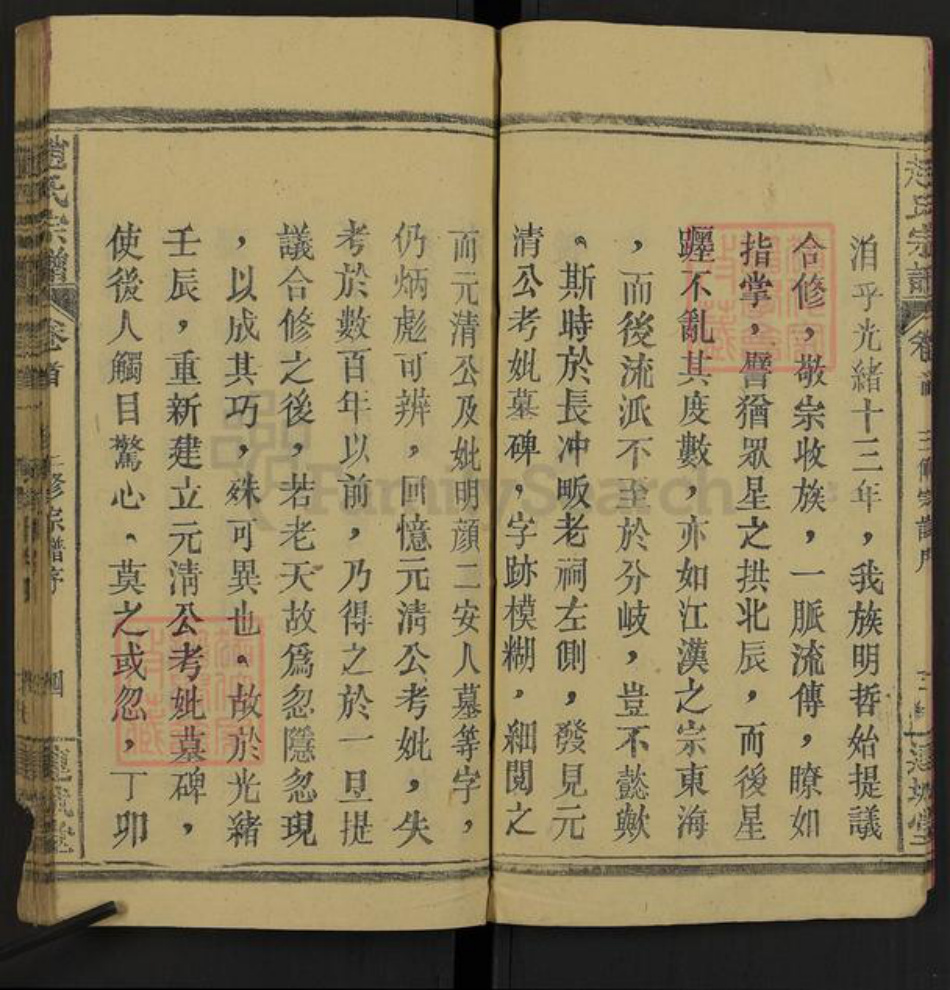 洎乎光緒十三年，我族明哲始提議
合修，敬宗收族，一脈流傳，瞭如
指掌，譬猶眾星之拱北辰，而後星
躔不亂其度數，亦如江漢之宗東海
，而後流派不至於分岐，豈不懿歟
。斯時於長冲畈老祠左側，發見元
清公考妣墓碑，字跡模糊，細閱之
而元清公及妣明顔二安人墓等字，
仍炳彪可辨，回憶元清公考妣，失
考於數百年以前，乃得之於一旦提
議合修之後，若老天故爲忽隱忽現
，以成其巧，殊可異也。故於光緒
壬辰，重新建立元清公考妣墓碑，
使後人觸目驚心。莫之或忽，丁卯
趙氏宗譜 卷首 修宗譜序 四
FamilySearch